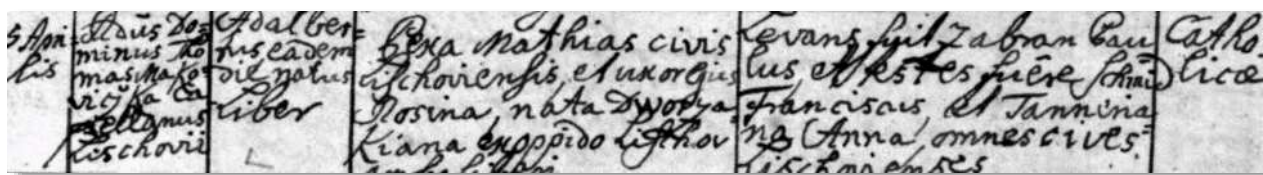 5 Apri-
lis
Adm̃ Do-
minus Tho
mas Mako-
vicžka Ca-
pellanus
Lischovii
Adalber-
tus eadem
die natus
Liber
Bexa Mathias civis
Lischoviensis, et uxor ejus
Rosina, nata Dworza-
Kiana ex oppido Lischov
ambo liberi
Levans fuit Zabran Pau-
lus, et testes fuêre Schmid
Franciscus, et Tannina
na Anna, omnes cives
Lischovienses
Catho-
licæ